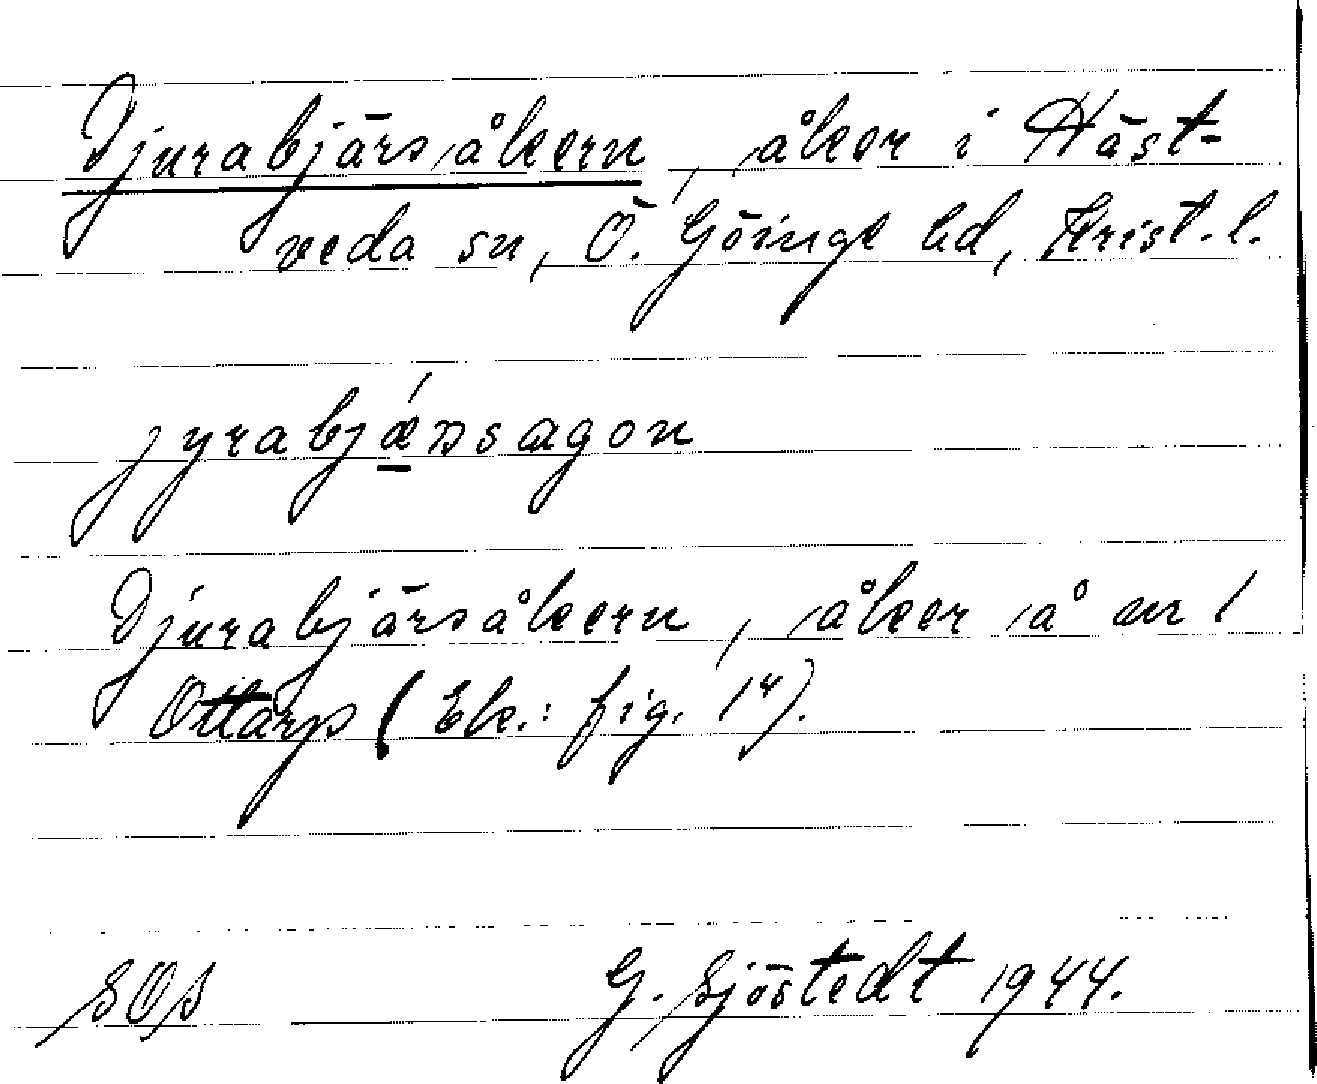 Djurabjärsåkern, åker i Häst-
veda sn, Ö. Göinge hd, Krist. l.
jyrabjǽnsagon
Djurabjärsåkern, åker å nr 1
Ottarp (Ek.: fig. 14).
SOS G. Sjöstedt 1944.